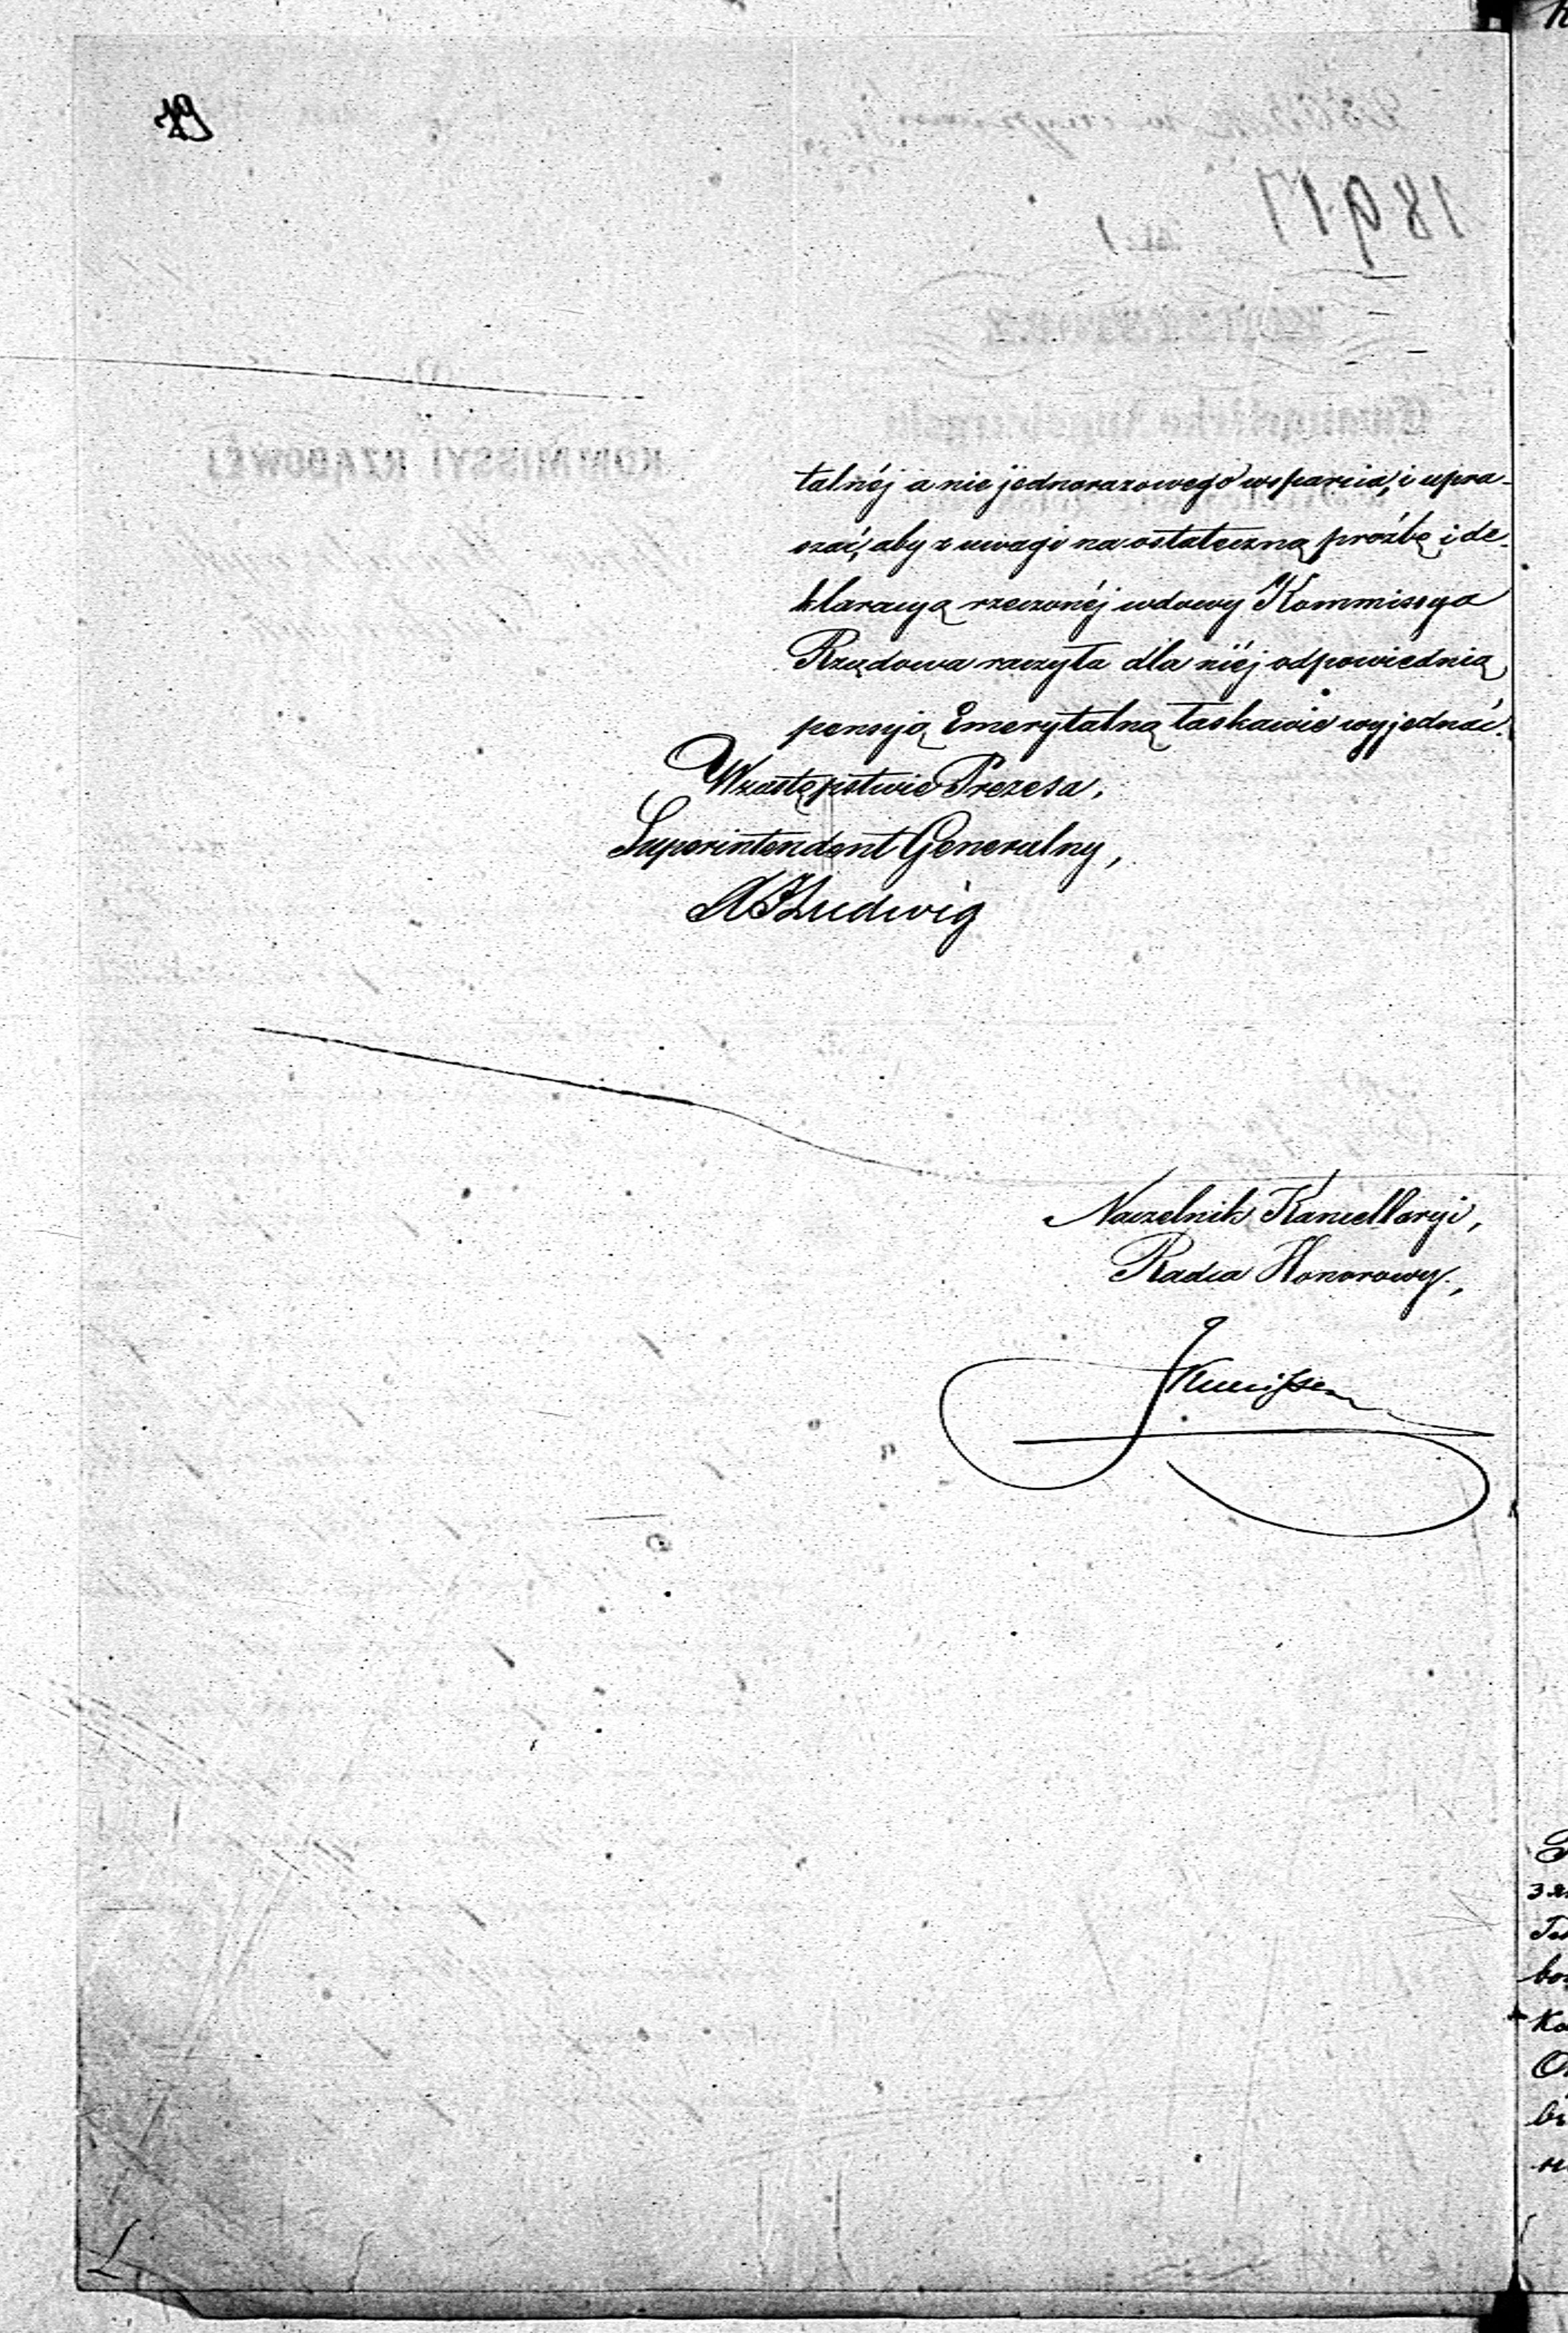 19
talnéj a nie jednorazowego wsparcia, i upra-
szać, aby z uwagi na ostateczną prozbę i de-
klaracyą rzeczonéj wdowy Kommissya
Rządowa raczyła dla niéj odpowiednią
pensyą Emerytalną łaskawie wyjednać.
W zastępstwie Prezesa,
Superintendent Generalny,
Ludwig
Naczelnik Kancellaryi,
Radca Honorowy,